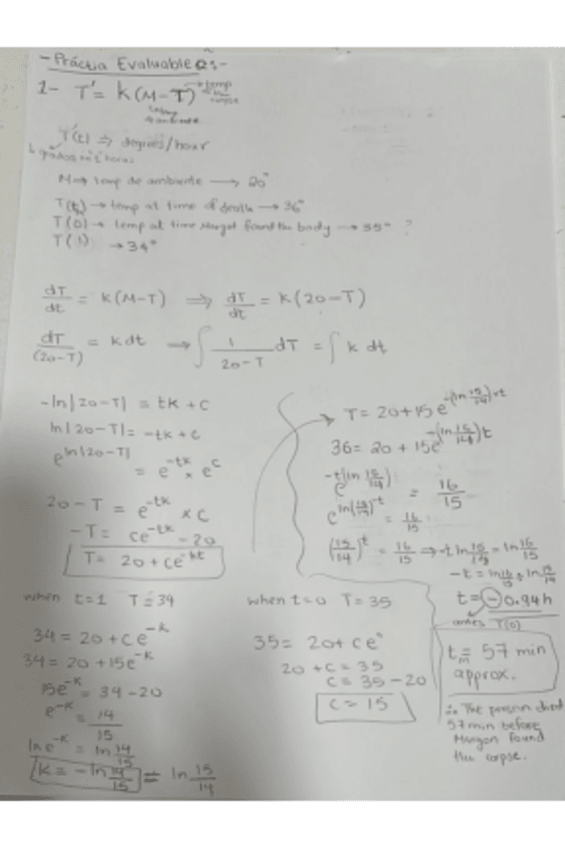 - Práctica Evaluable 2:-
1- T' = K(M-T) → temp
corpse
T'(t) ⇒ degrees/hour
↳ grados
M → temp de ambiente → 20°
T(t) → temp at time of death → 36°
T(0) → temp at time Margot found the body → 35° ?
T(1) → 34°
dT/dt = K(M-T) ⇒ dT/dt = K(20-T)
dT/(20-T) = K dt → ∫ 1/(20-T) dT = ∫ K dt
-ln|20-T| = tK + C
ln|20-T| = -tK + C
e^ln|20-T| = e^-tK × e^C
20-T = e^-tK × C
-T = Ce^-tK - 20
T = 20 + Ce^-kt
when t=1 T=34
34 = 20 + Ce^-K
34 = 20 + 15e^-K
15e^-K = 34-20
e^-K = 14/15
ln e^-K = ln 14/15
K = -ln 14/15 = ln 15/14
when t=0 T=35
35 = 20 + Ce°
20 + C = 35
C = 35-20
C = 15
T = 20 + 15e^-(ln 15/14)t
36 = 20 + 15e^-(ln 15/14)t
e^-t(ln 15/14) = 16/15
e^ln(15/14)^-t = 16/15
(15/14)^-t = 16/15 ⇒ -t ln 15/14 = ln 16/15
-t = ln 16/15 ÷ ln 15/14
t = -0.94h
antes T(0)
t = 57 min
approx.
∴ The person died
57 min before
found
the corpse.